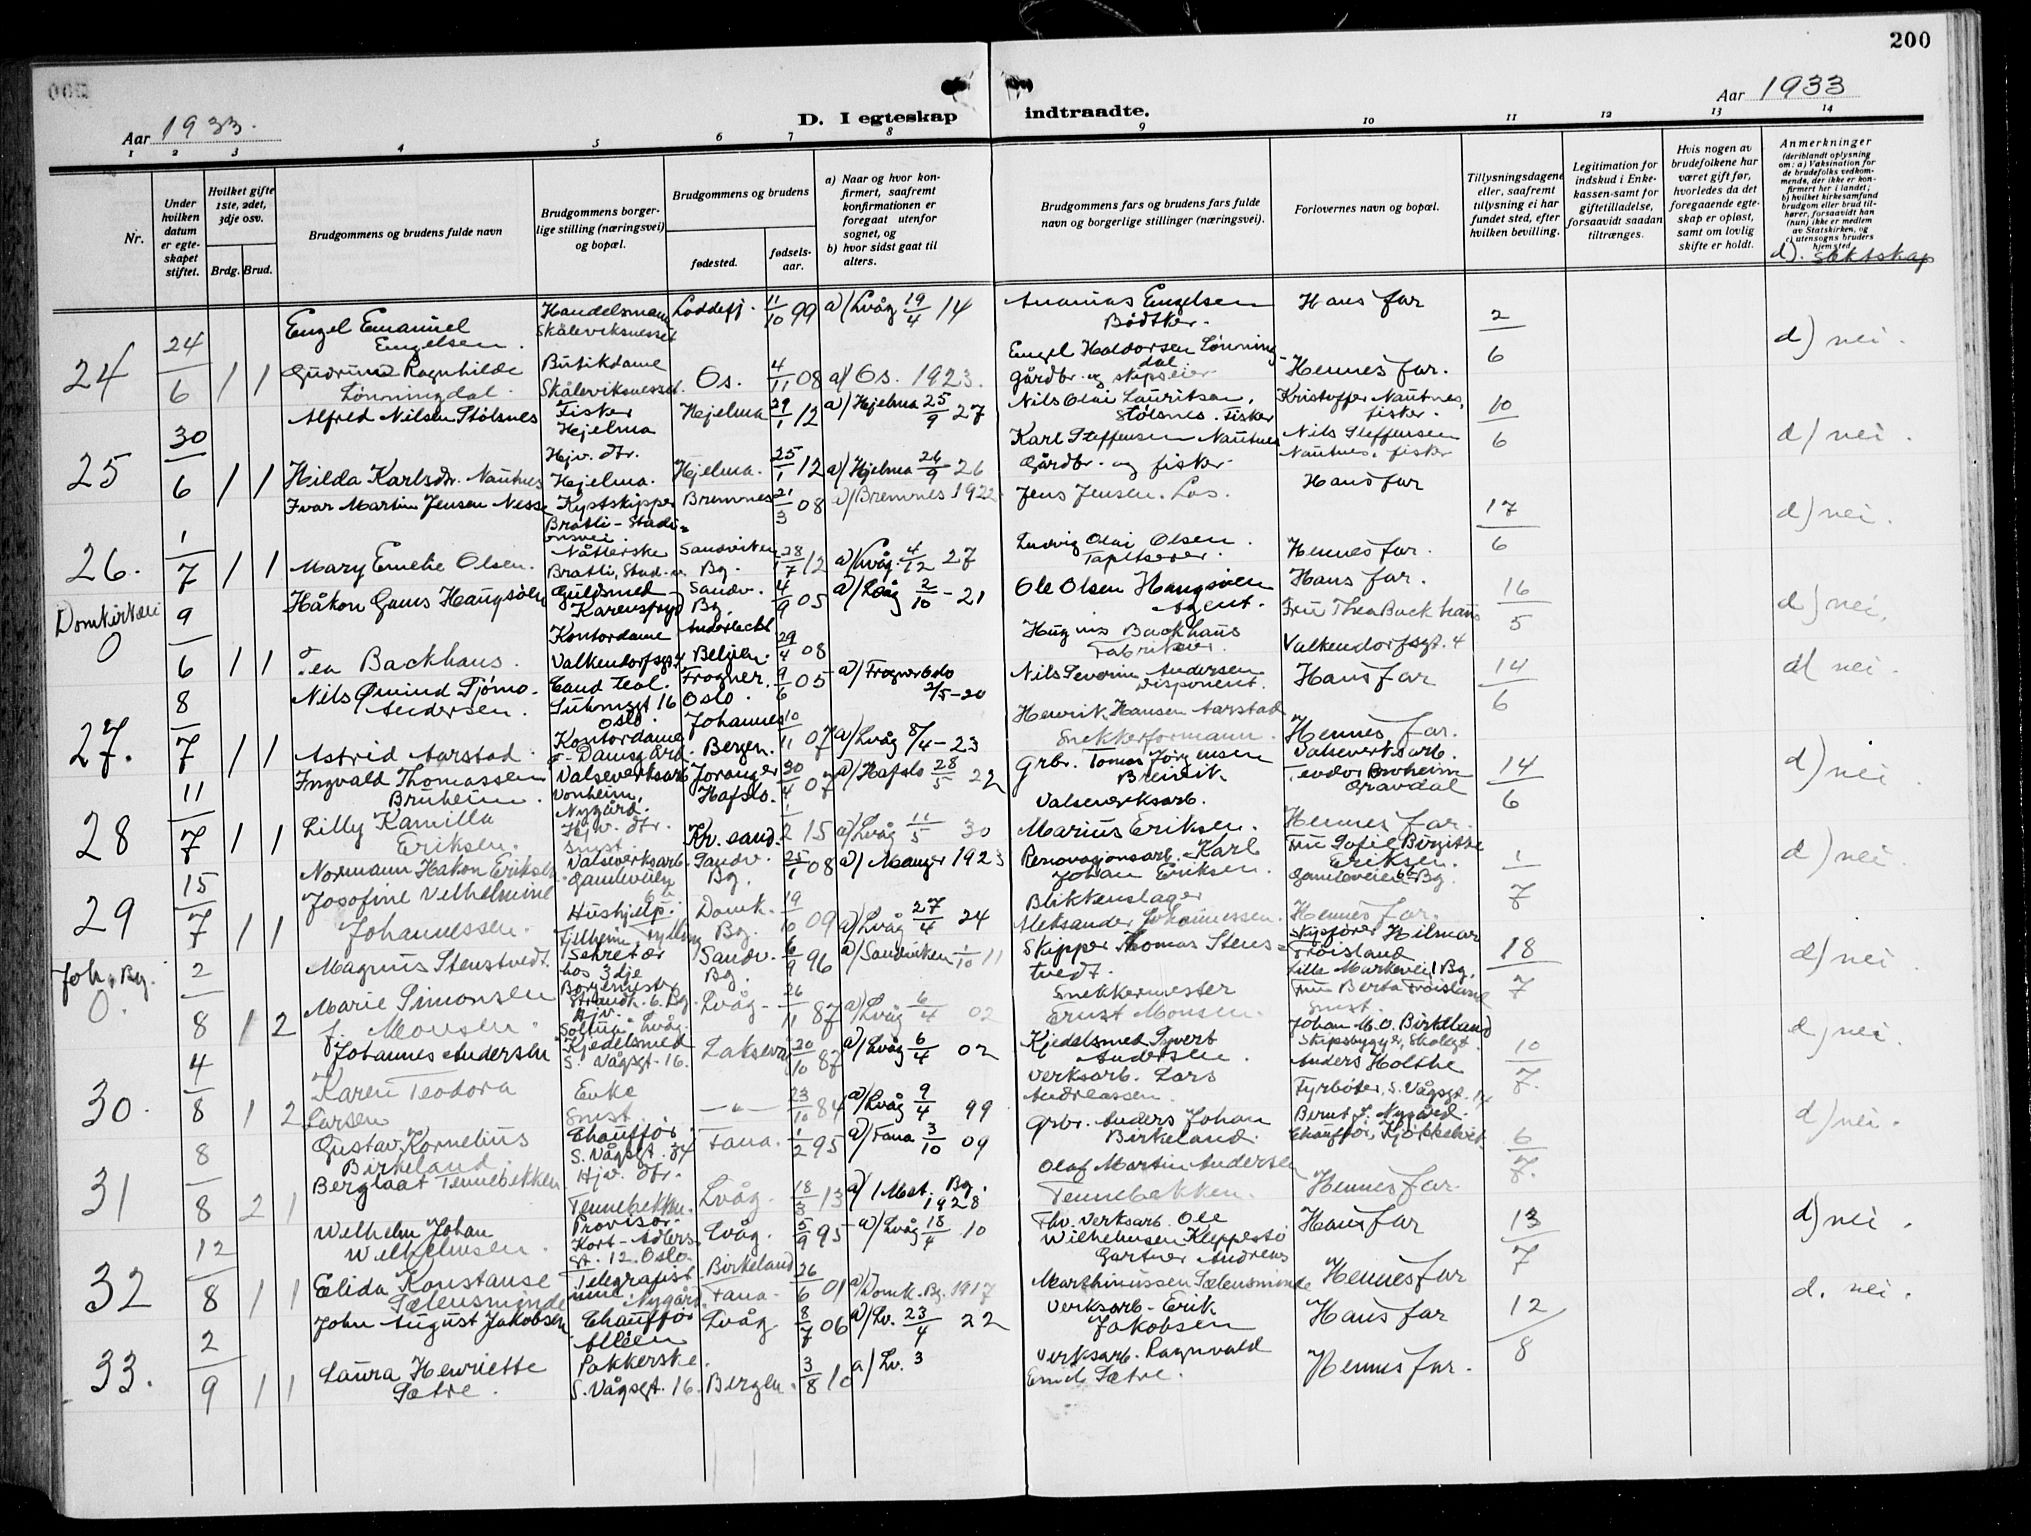 200
Aar 1933.
D. I egteskap indtraadte.
Aar 1933
1 2 3 4 5 6 7 8 9 10 11 12 13 14
Nr.
Under hvilken datum er egteskapet stiftet.
Hvilket gifte 1ste, 2det, 3dje osv.
Brdg. Brud.
Brudgommens og brudens fulde navn
Brudgommens borgerlige stilling (næringsvei) og bopæl.
Brudgommens og brudens
fødested.
fødselsaar.
a) Naar og hvor konfirmert, saafremt konfirmationen er foregaat utenfor sognet, og
b) hvor sidst gaat til alters.
Brudgommens fars og brudens fars fulde navn og borgerlige stillinger (næringsvei).
Forlovernes navn og bopæl.
Tillysningsdagene eller, saafremt tillysning ei har fundet sted, efter hvilken bevilling.
Legitimation for indskud i Enkekassen-samt for giftetilladelse, forsaavidt saadan tiltrænges.
Hvis nogen av brudefolkene har været gift før, hvorledes da det foregaaende egteskap er opløst, samt om lovlig skifte er holdt.
Anmerkninger
(deriblandt oplysning om: a) Vaksination for de brudefolks vedkommende, der ikke er konfirmert her i landet; b) hvilket kirkesamfund brudgom eller brud tilhører, forsaavidt han (hun) ikke er medlem av Statskirken, og c) utensogns bruders hjemsted
d). slektskap
24 24/6 1 1 Engel Emanuel Engelsen. Handelsmann Skåleviksnesset Loddefj. 11/10 99 a) Lvåg 19/4 14 Ananias Engelsen Bødtker. Hans far 2/6 d) nei.
Gudrund Ragnhilde Lønningdal. Butikdame Skåleviksnesset. Os. 4/11 08 a) Os. 1923. Engel Haldorsen Lønningdal gårdbr. og skipseier Hennes far.
25 30/6 1 1 Alfred Nilsen Stølsnes Fisker Hjelma Hjelma 29/1 12 a) Hjelma 25/9 27 Nils Olai Lauritsen, Stølsnes. Fisker Kristoffer Nautnes, fisker. 10/6 d) nei.
Hilda Karlsdtr. Nautnes Hjv. dtr. Hjelma. Hjelma. 25/1 12 a) Hjelma 26/9 26 Karl Steffensen Nautnes Gårdbr. og fisker Nils Steffensen Nautnes, fisker
26. 1/7 1 1 Ivar Martin Jensen Nesse Kystskipper Bratli-Stadionsvei. Bremnes 21/3 08 a) Bremnes 1922 Jens Jensen. Los. Hans far 17/6 d) nei.
Mary Emelie Olsen. Nåtlerske Bratli, Stad. v. Sandviken Bg. 28/7 12 a) Lvåg. 4/12 27 Ludvig Olai Olsen. Tapetserer. Hennes far.
Domkirken 0 9/6 1 1 Håkon Gams Haugsøen Guldsmed Karenstryd Sandv. Bg. 4/9 05 a) Lvåg 2/10-21 Ole Olsen Haugsøen Agent. Hans far. 16/5 d) nei.
Tea Backhaus. Kontordame Valkendorfsgt 4 Anderlecht Belgien. 29/4 08 Backhaus Fabrikeier. Fru Thea Backhaus Valkendorfsgt. 4
27. 8/7 1 1 Nils Øivind Tjømo-Andersen. Cand. teol. 16 Oslo. Frogner, Oslo. 9/6 05 a) Frogner Oslo 2/5-20 Nils Severin Andersen Disponent. Hans far 14/6 d) nei.
Astrid Aarstad. Kontordame Damsgård. Johannes Bergen. 10/11 07 a) Lvåg 8/4-23 Henrik Hansen Aarstad Snekkerformann. Hennes far.
28 11/7 1 1 Ingvald Thomassen Bruheim. Valseverksarb. Vonheim, Nygård. Joranger Hafslo. 30/4 07 a) Hafslo 28/5 22 Grbr. Tomas Jørgensen Breivik Valseverksarb. Teodor Bruheim Gravdal 14/6 d) nei.
Lilly Kamilla Eriksen. Hjv. dtr. Kr. sand. 1/2 15 a) Lvåg 11/5 30 Valseverksarb. Marius Eriksen. Hennes far.
29 15/7 1 1 Normann Hakon Eriksen Valseverksarb. Gamleveien Sandv. Bg. 25/1 08 a) Manger 1923 Renovasjonsarb. Karl Johan Eriksen. Fru Sofie Birgitte Eriksen. Gamleveien Bg. 1/7 d) nei.
Josofine Vilhelmine Johannessen. Hushjelp. Fjellheim Domk. Bg. 19/10 09 a) Lvåg 27/4 24 Blikkenslager Aleksander Johannessen. Hennes far.
Joh. Bg. 0. 2/8 1 2 Magnus Stenstvedt Sekretær hos 3dje Borgemestr. Strandk. 6. Bg. Sandv. Bg. 6/9 96 a) Sandviken 1/10 11 Skipper Thomas Stenstvedt. Skipsfører Hilmar Frøisland Lille Markevei 1 Bg. 18/7 d) nei.
Marie Simonsen f. Monsen. Hjv. Soltun-Lvåg. Lvåg. 26/11 87 a) Lvåg 6/4 02 Snekkermester Ernst Monsen. Fru Berta Frøisland Smst.
30. 4/8 1 2 Johannes Andersen Kjedelsmed S. Vågsgt. 16. Laksevåg 20/10 87 a) Lvåg 6/4 02 Kjedelsmed Syvert Andersen. Johan M. O. Birkeland Skipsbygger, Skolegt. 10/7. d) nei.
Karen Teodora Larsen Enke Smst. —"— 23/10 84 a) Lvåg 9/4 99 Verksarb. Lars Andreassen. Anders Holthe Fyrbøter, S. Vågsgt.
31 8/8 2 1 Gustav Kornelius Birkeland. Chauffør S. Vågsgt. 34 Fana. 1/2 95 a) Fana 3/10 09 Grbr. Anders Johan Birkeland. Bernt J. Nygård. Chauffør, 6/7. d) nei.
Bergtaat Tennebekken Hjv. dtr. Tennebekken. Lvåg. 18/3 13 a) 1 Met. Bg. 1928 Olaf Martin Andersen Tennebekken. Hennes far.
32 12/8 1 1 Wilhelm Johan Wilhelmsen. Provisor. Kort-Adelersgt. 12. Oslo. Lvåg. 5/9 95 a) Lvåg 18/4 10 Fhv. verksarb. Ole Wilhelmsen Kleppestø Hans far 13/7 d) nei.
Elida Konstanse Sælensminde Telegrafistinne. Nygård. Birkeland Fana. 26/6 01 a) Domk. Bg. 1917 Gartner Andreas Marthinussen Sælensminde Hennes far
33. 2/9 1 1 John August Jakobsen Chauffør Alléen Lvåg 8/7 06 a) Lv. 23/4 22 Verksarb. Erik Jakobsen Hans far 12/8 d. nei.
Laura Henriette Sætre. Pakkerske. S. Vågsgt. 16. Bergen. 3/8 10 a) Lv. 3 Verksarb. Ragnvald Emil Sætre. Hennes far.